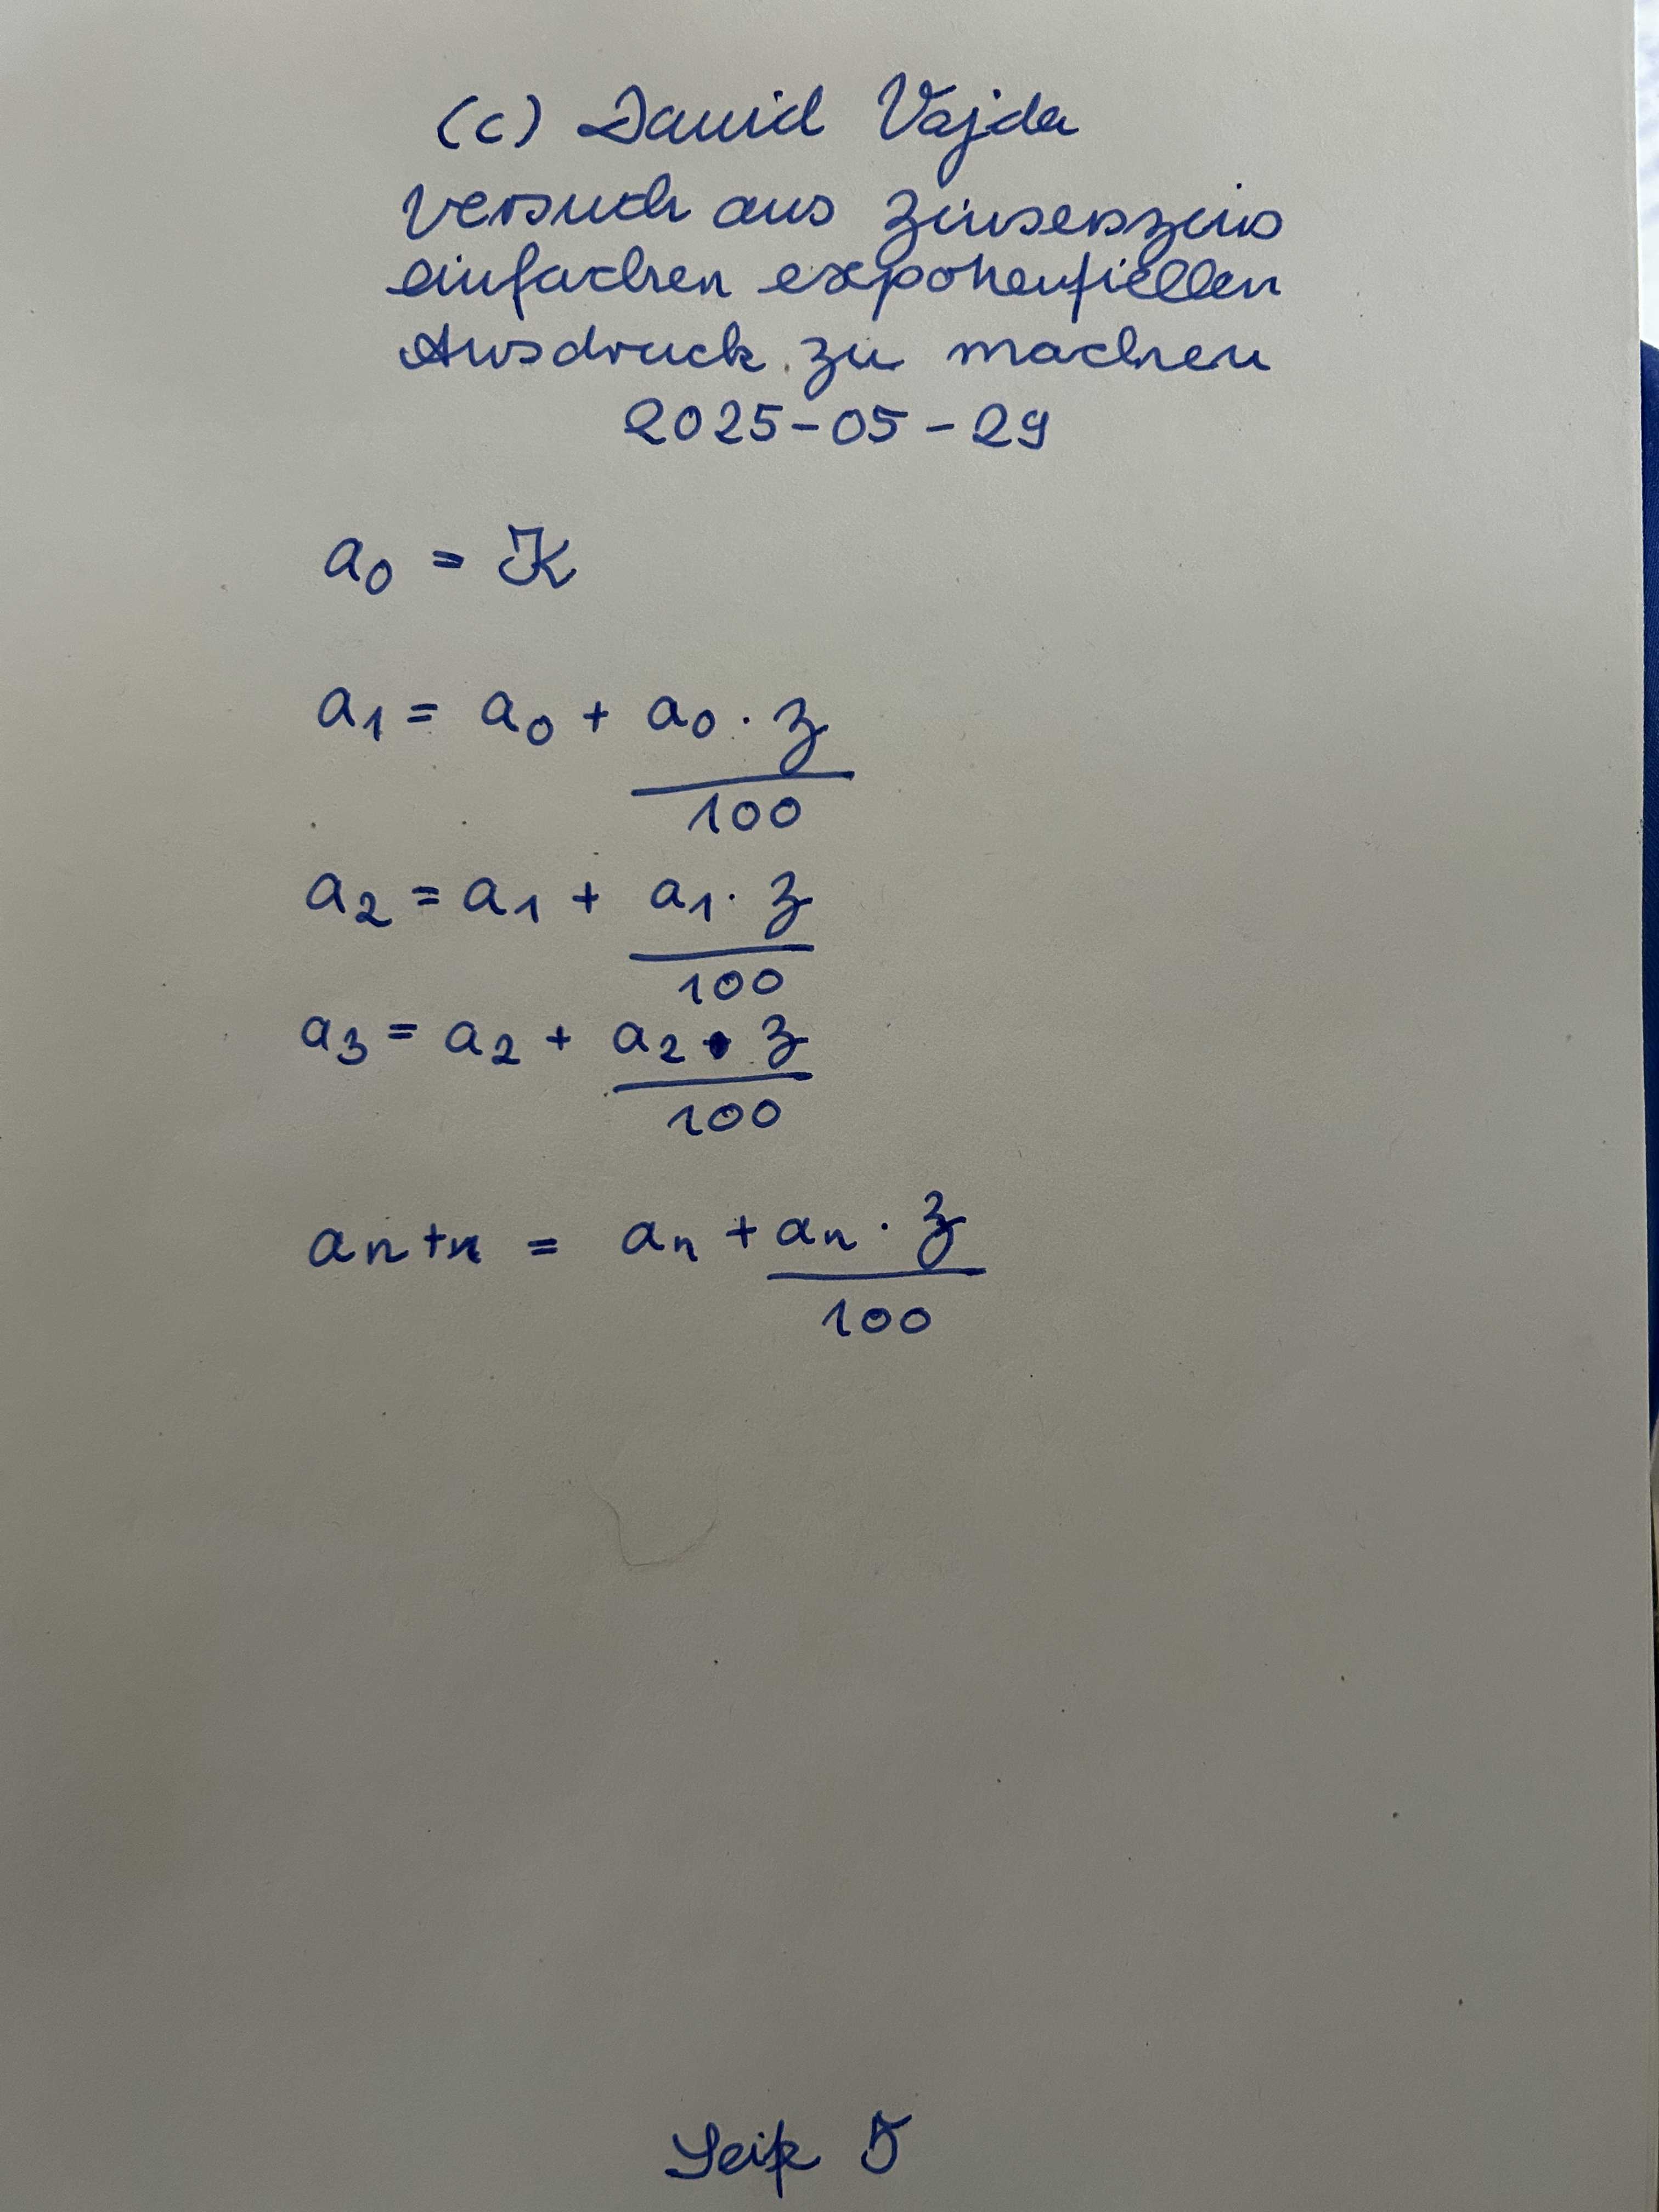 (c) David Vajda
Versuch aus Zinseszins
einfachen exponentiellen
Ausdruck zu machen
2025-05-29
a0 = K
a1 = a0 + a0 · z
100
a2 = a1 + a1 · z
100
a3 = a2 + a2 · z
100
an+n = an + an · z
100
Seite 5